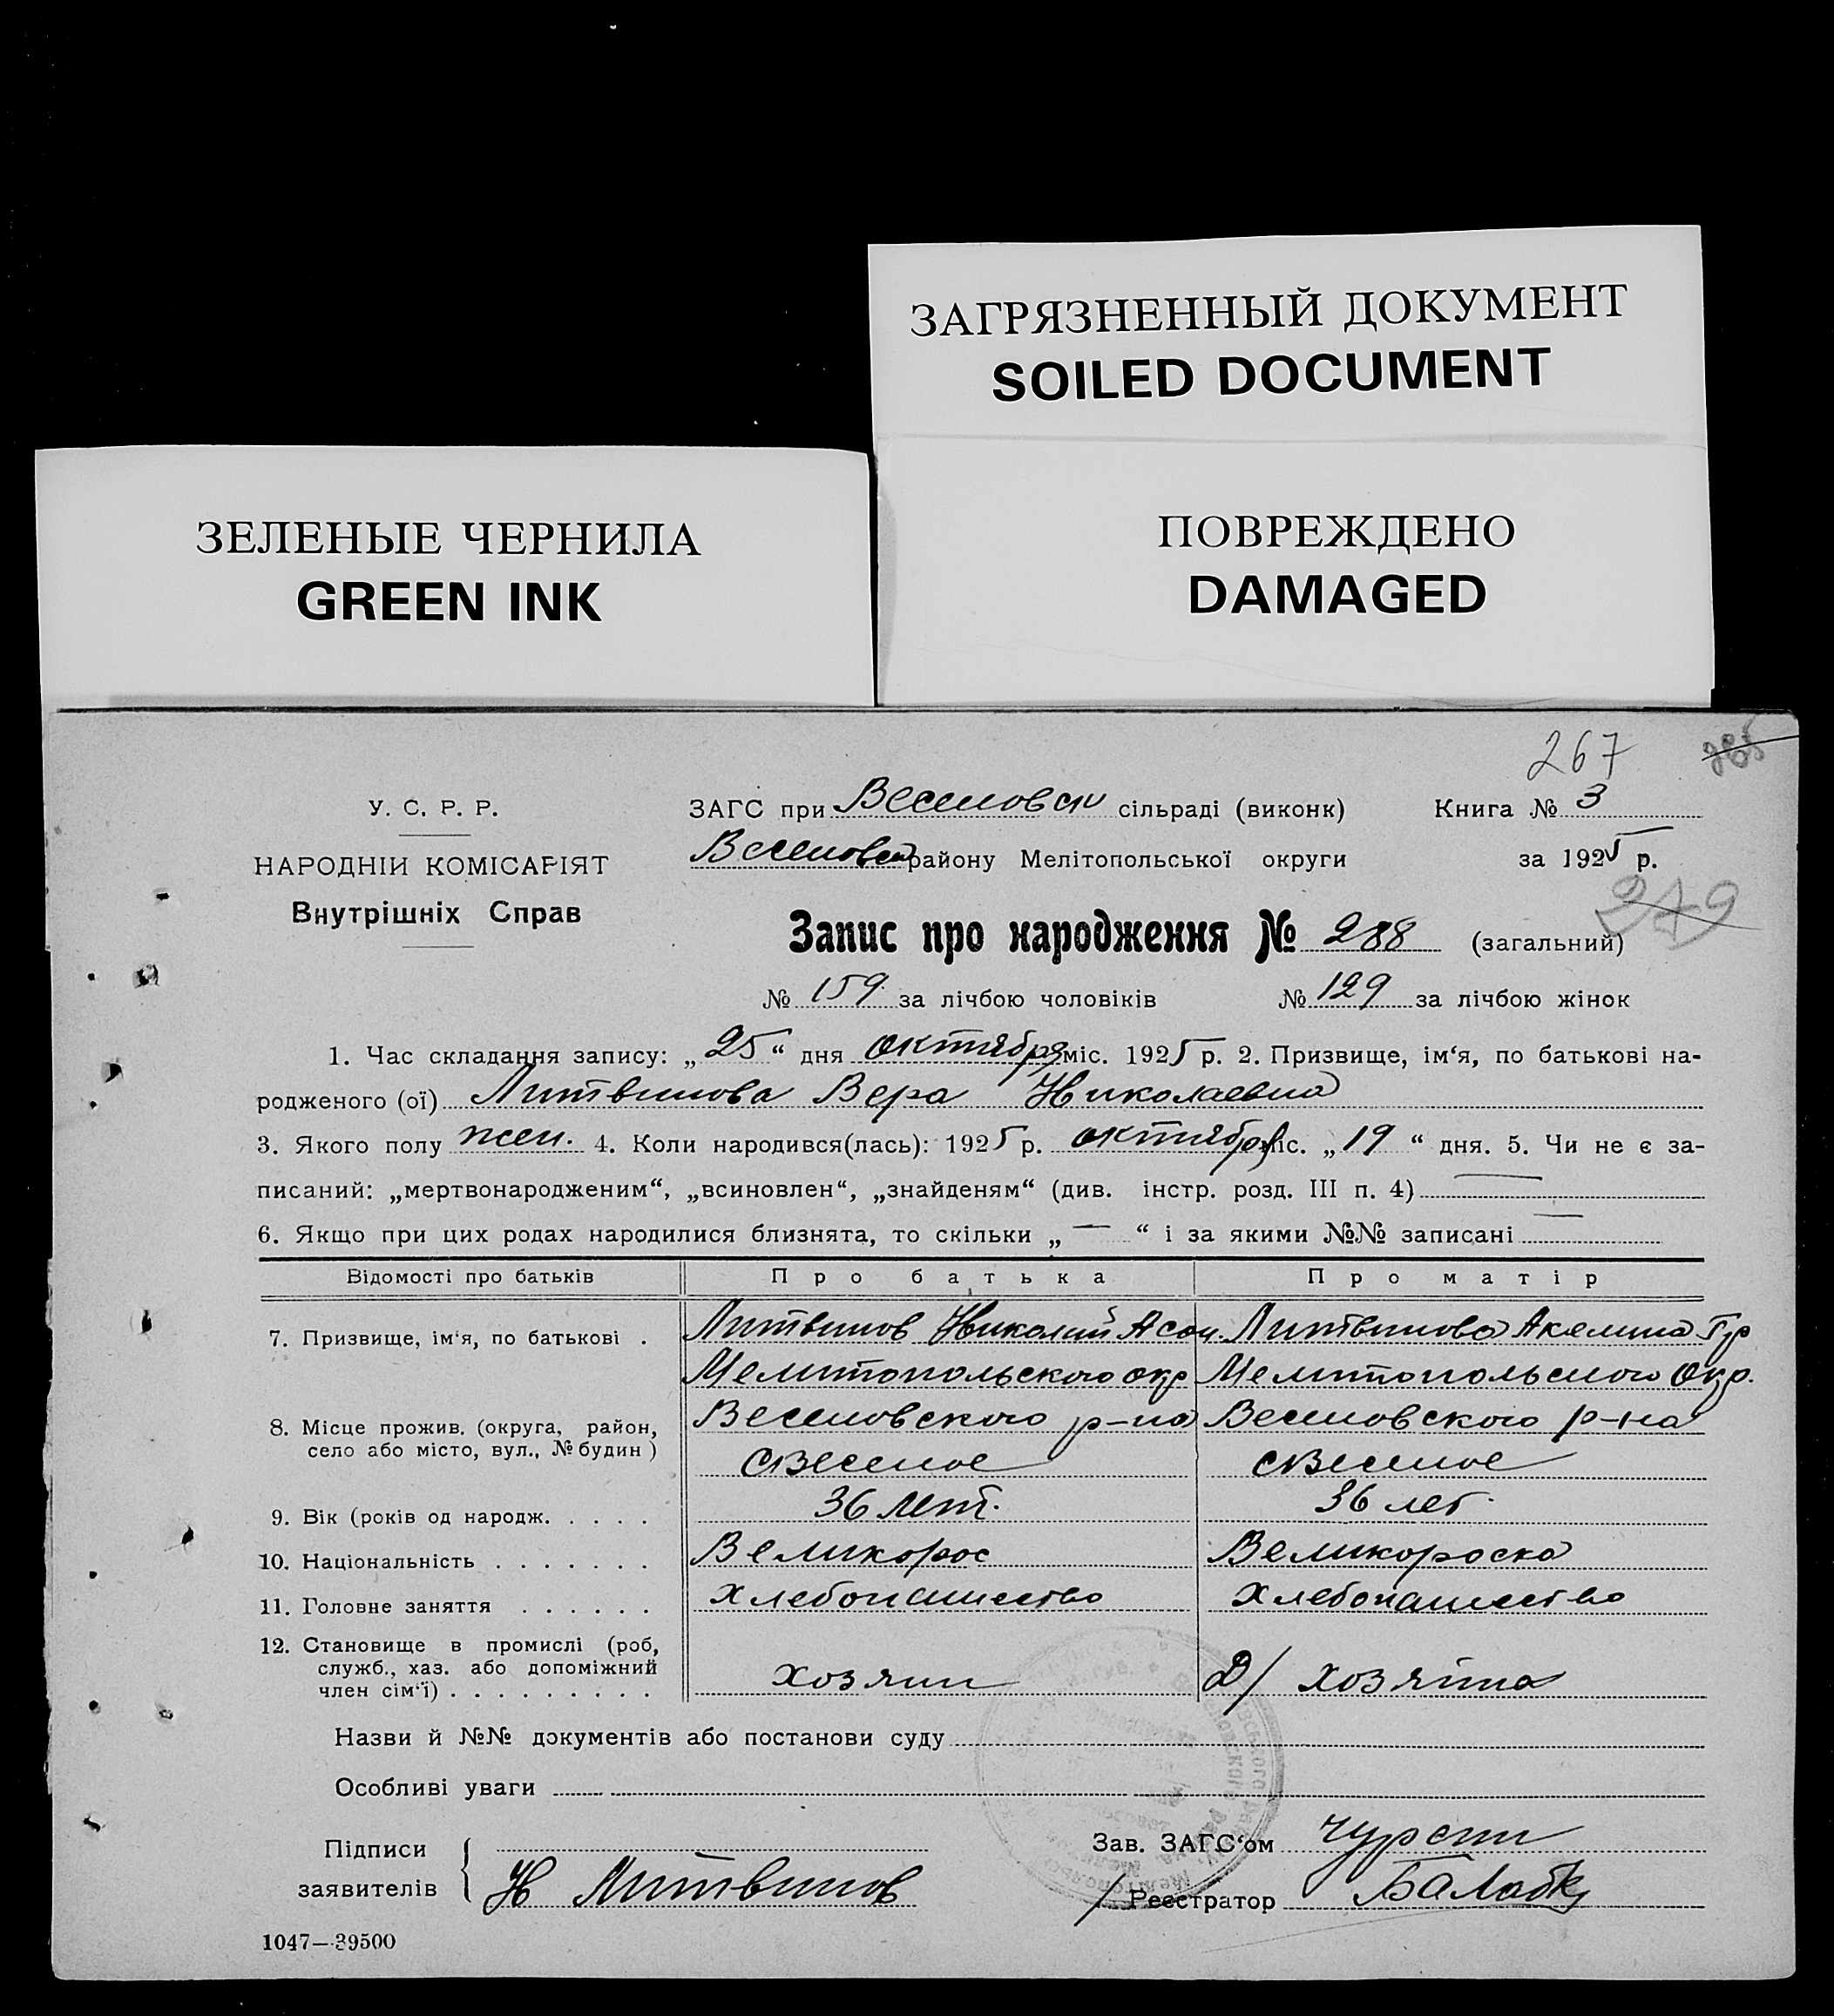 ЗАГРЯЗНЕННЫЙ ДОКУМЕНТ
SOILED DOCUMENT
ЗЕЛЕНЫЕ ЧЕРНИЛА
GREEN INK
ПОВРЕЖДЕНО
DAMAGED
267
У. С. Р. Р.
ЗАГС при Веселовск сільраді (виконк) Книга № 3
НАРОДНІЙ КОМІСАРІЯТ
Веселовск району Мелітопольської округи за 1925 р.
Внутрішніх Справ
279
Запис про народження № 288 (загальний)
№ 159 за лічбою чоловіків № 129 за лічбою жінок
1. Час складання запису: „25“ дня октября міс. 1925 р. 2. Призвище, ім‘я, по батькові на-
родженого (ої) Литвинова Вера Николаевна
3. Якого полу жен. 4. Коли народився(лась): 1925 р. октября міс. „19“ дня. 5. Чи не є за-
писаний: „мертвонародженим“, „всиновлен“, „знайденям“ (див. інстр. розд. III п. 4) —
6. Якщо при цих родах народилися близнята, то скільки „—“ і за якими №№ записані —
Відомості про батьків Про батька Про матір
7. Призвище, ім‘я, по батькові . Литвинов Николай Литвинова Акилина Гр
Мелитопольского окр Мелитопольского Окр.
8. Місце прожив. (округа, район, село або місто, вул., № будин) Веселовского р-на Веселовского р-на
с Веселое с Веселое
9. Вік (років од народж. . . . . 36 лет. 36 лет.
10. Національність . . . . . . . Великорос Великороска
11. Головне заняття . . . . . . Хлебопашество Хлебопашество
12. Становище в промислі (роб, служб., хаз. або допоміжний член сім‘ї) . . . . . . . . . хозяин Д/ хозяина
Назви й №№ документів або постанови суду
Особливі уваги
Підписи
заявителів
Н Литвинов
Зав. ЗАГС‘ом
/ Реєстратор
1047—39500